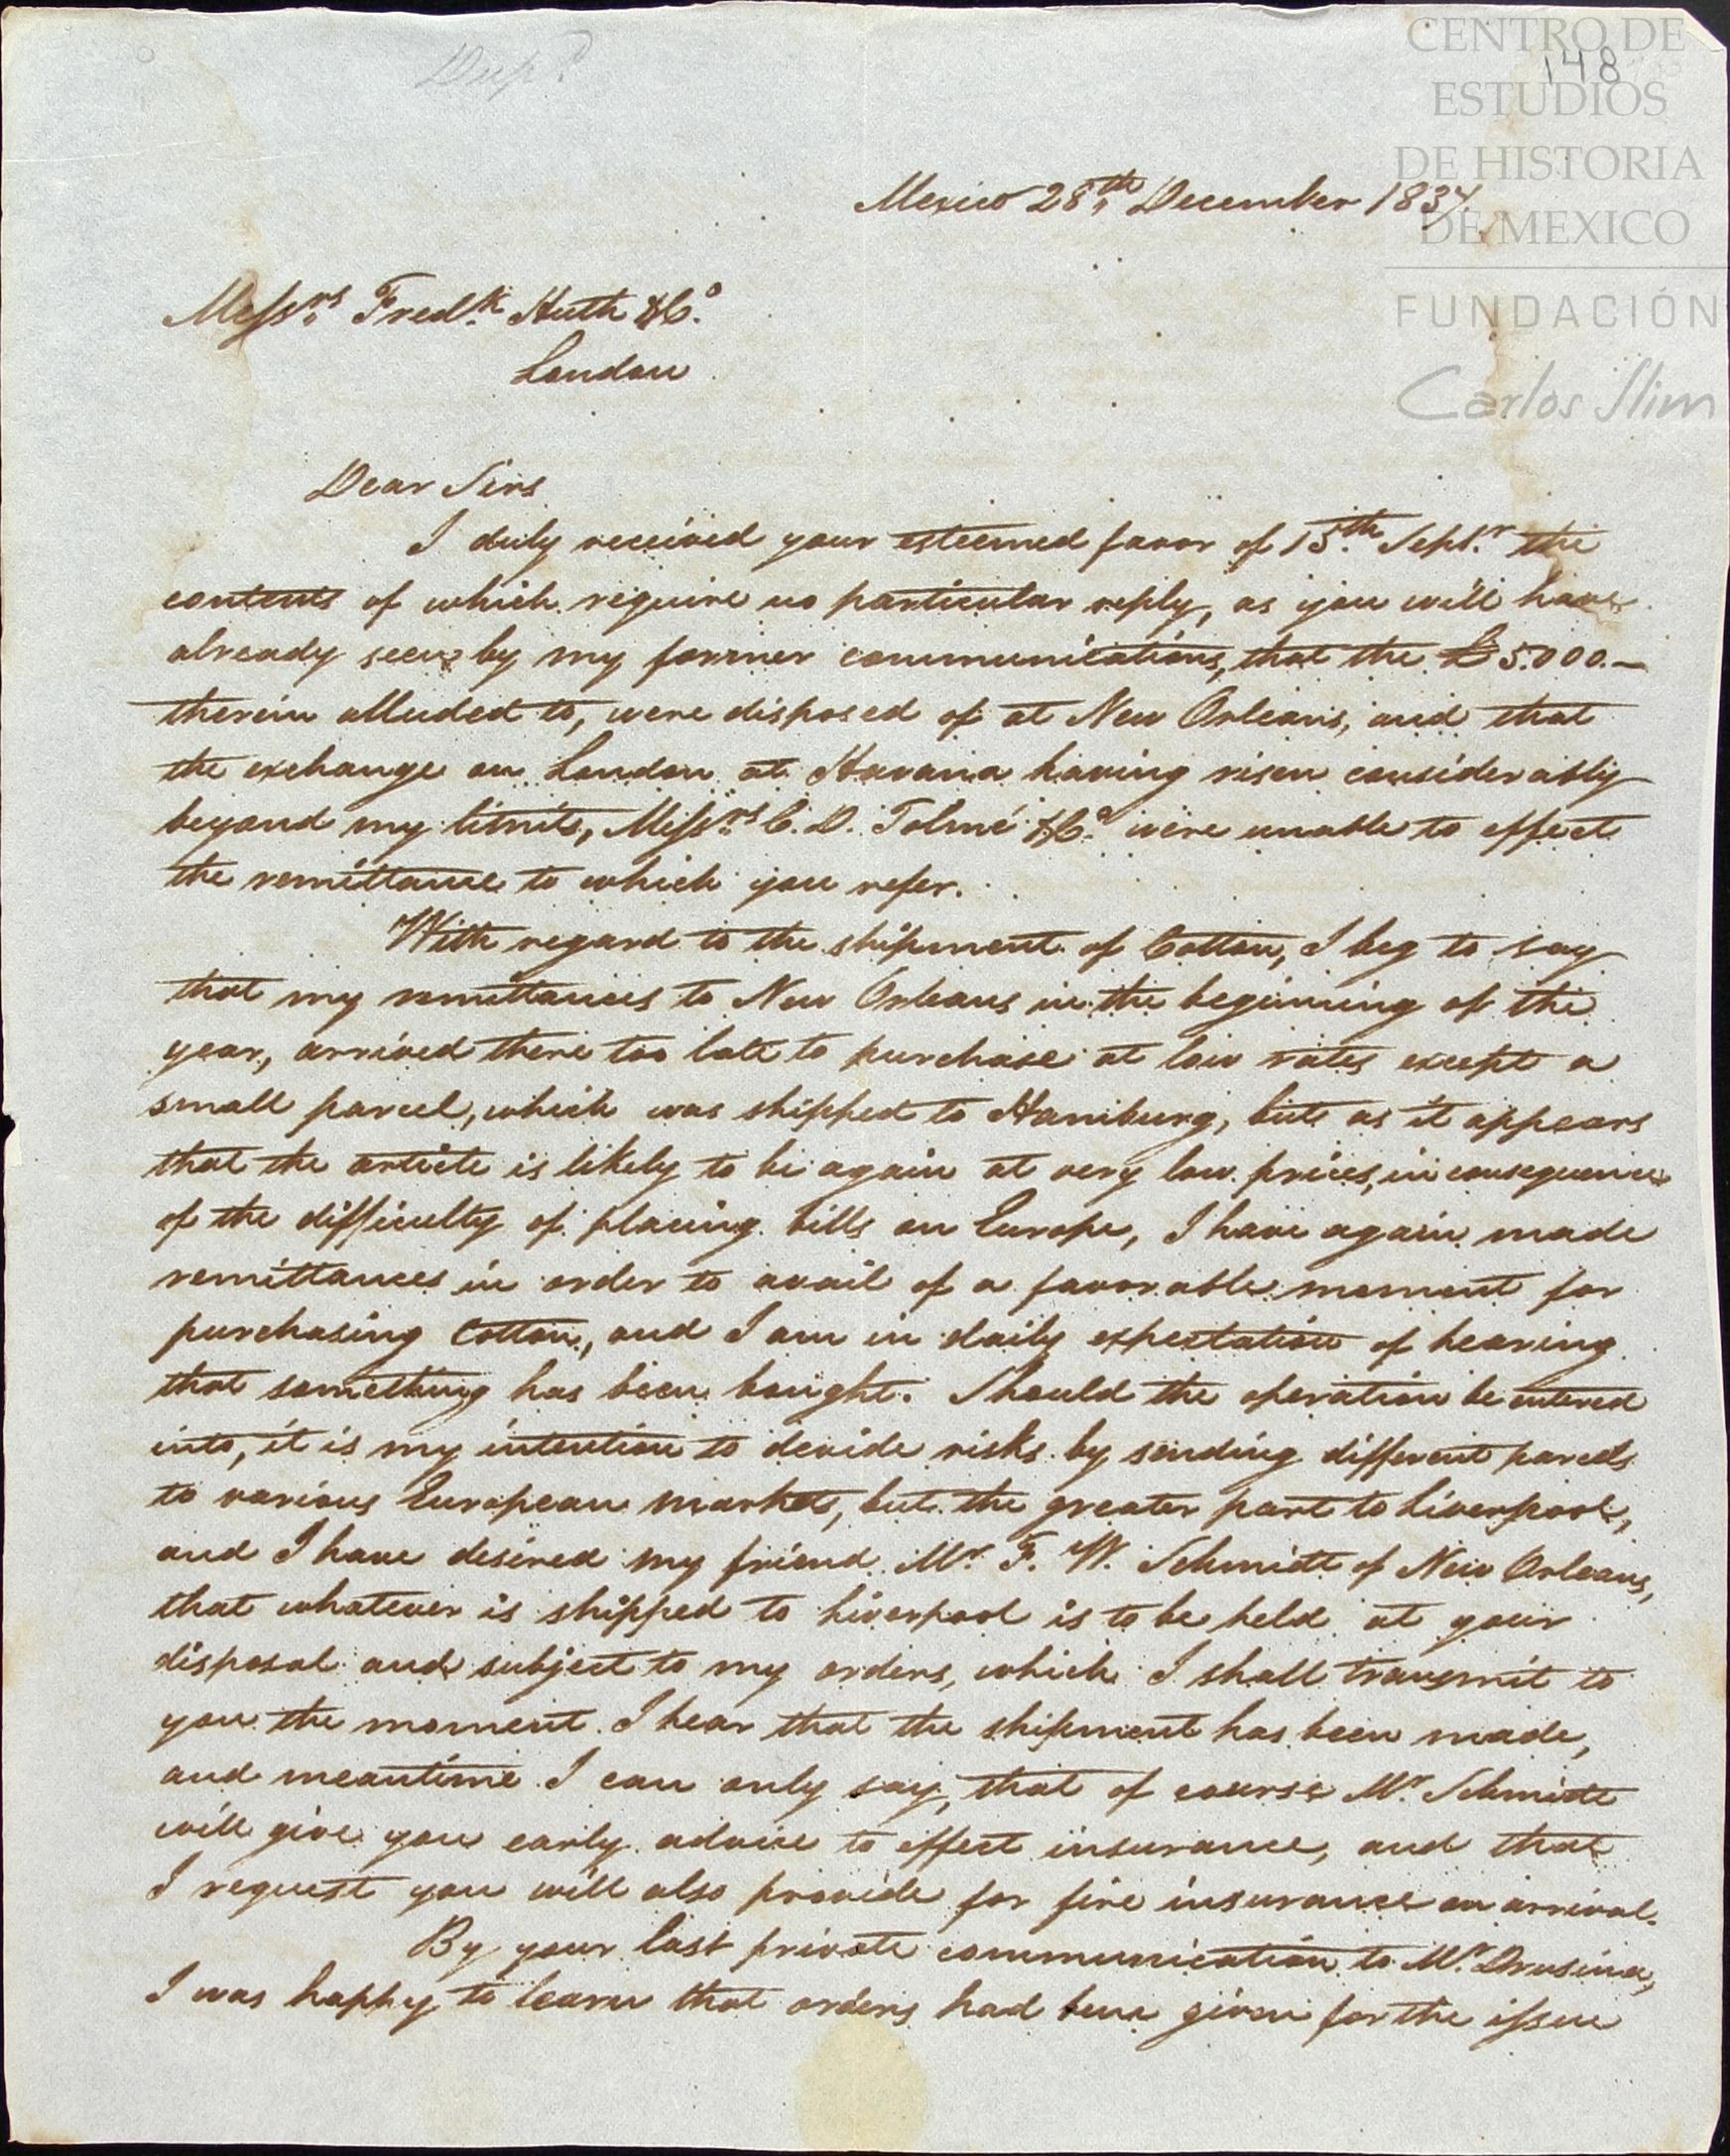 Dup.º
CENTRO DE
148
ESTUDIOS
DE HISTORIA
DE MEXICO
FUNDACIÓN
Carlos Slim
Mexico 28th December 1837.
Messrs Fredk Huth & Co.
London
Dear Sirs
I duly received your esteemed favor of 15th Septr the
contents of which require no particular reply, as you will have
already seen by my former communications, that the £5.000.—
therein alluded to, were disposed of at New Orleans, and that
the exchange on London at Havana having risen considerably
beyond my limits, Messrs C. D. Tolmé & Co. were unable to effect
the remittance to which you refer.
With regard to the shipment of Cotton, I beg to say
that my remittances to New Orleans in the beginning of the
year, arrived there too late to purchase at low rates except a
small parcel, which was shipped to Hamburg, but as it appears
that the article is likely to be again at very low prices, in consequence
of the difficulty of placing bills on Europe, I have again made
remittances in order to avail of a favorable moment for
purchasing Cotton, and I am in daily expectation of hearing
that something has been bought. Should the operation be entered
into, it is my intention to devide risks by sending different parcels
to various European markets, but the greater part to Liverpool,
and I have desired my friend Mr. F. W. Schmidt of New Orleans,
that whatever is shipped to Liverpool is to be held at your
disposal and subject to my orders, which I shall transmit to
you the moment I hear that the shipment has been made,
and meantime I can only say, that of course Mr. Schmidt
will give you early advice to effect insurance, and that
I request you will also provide for fire insurance on arrival.
By your last private communication to Mr. Drusina,
I was happy to learn that orders had been given for the issue